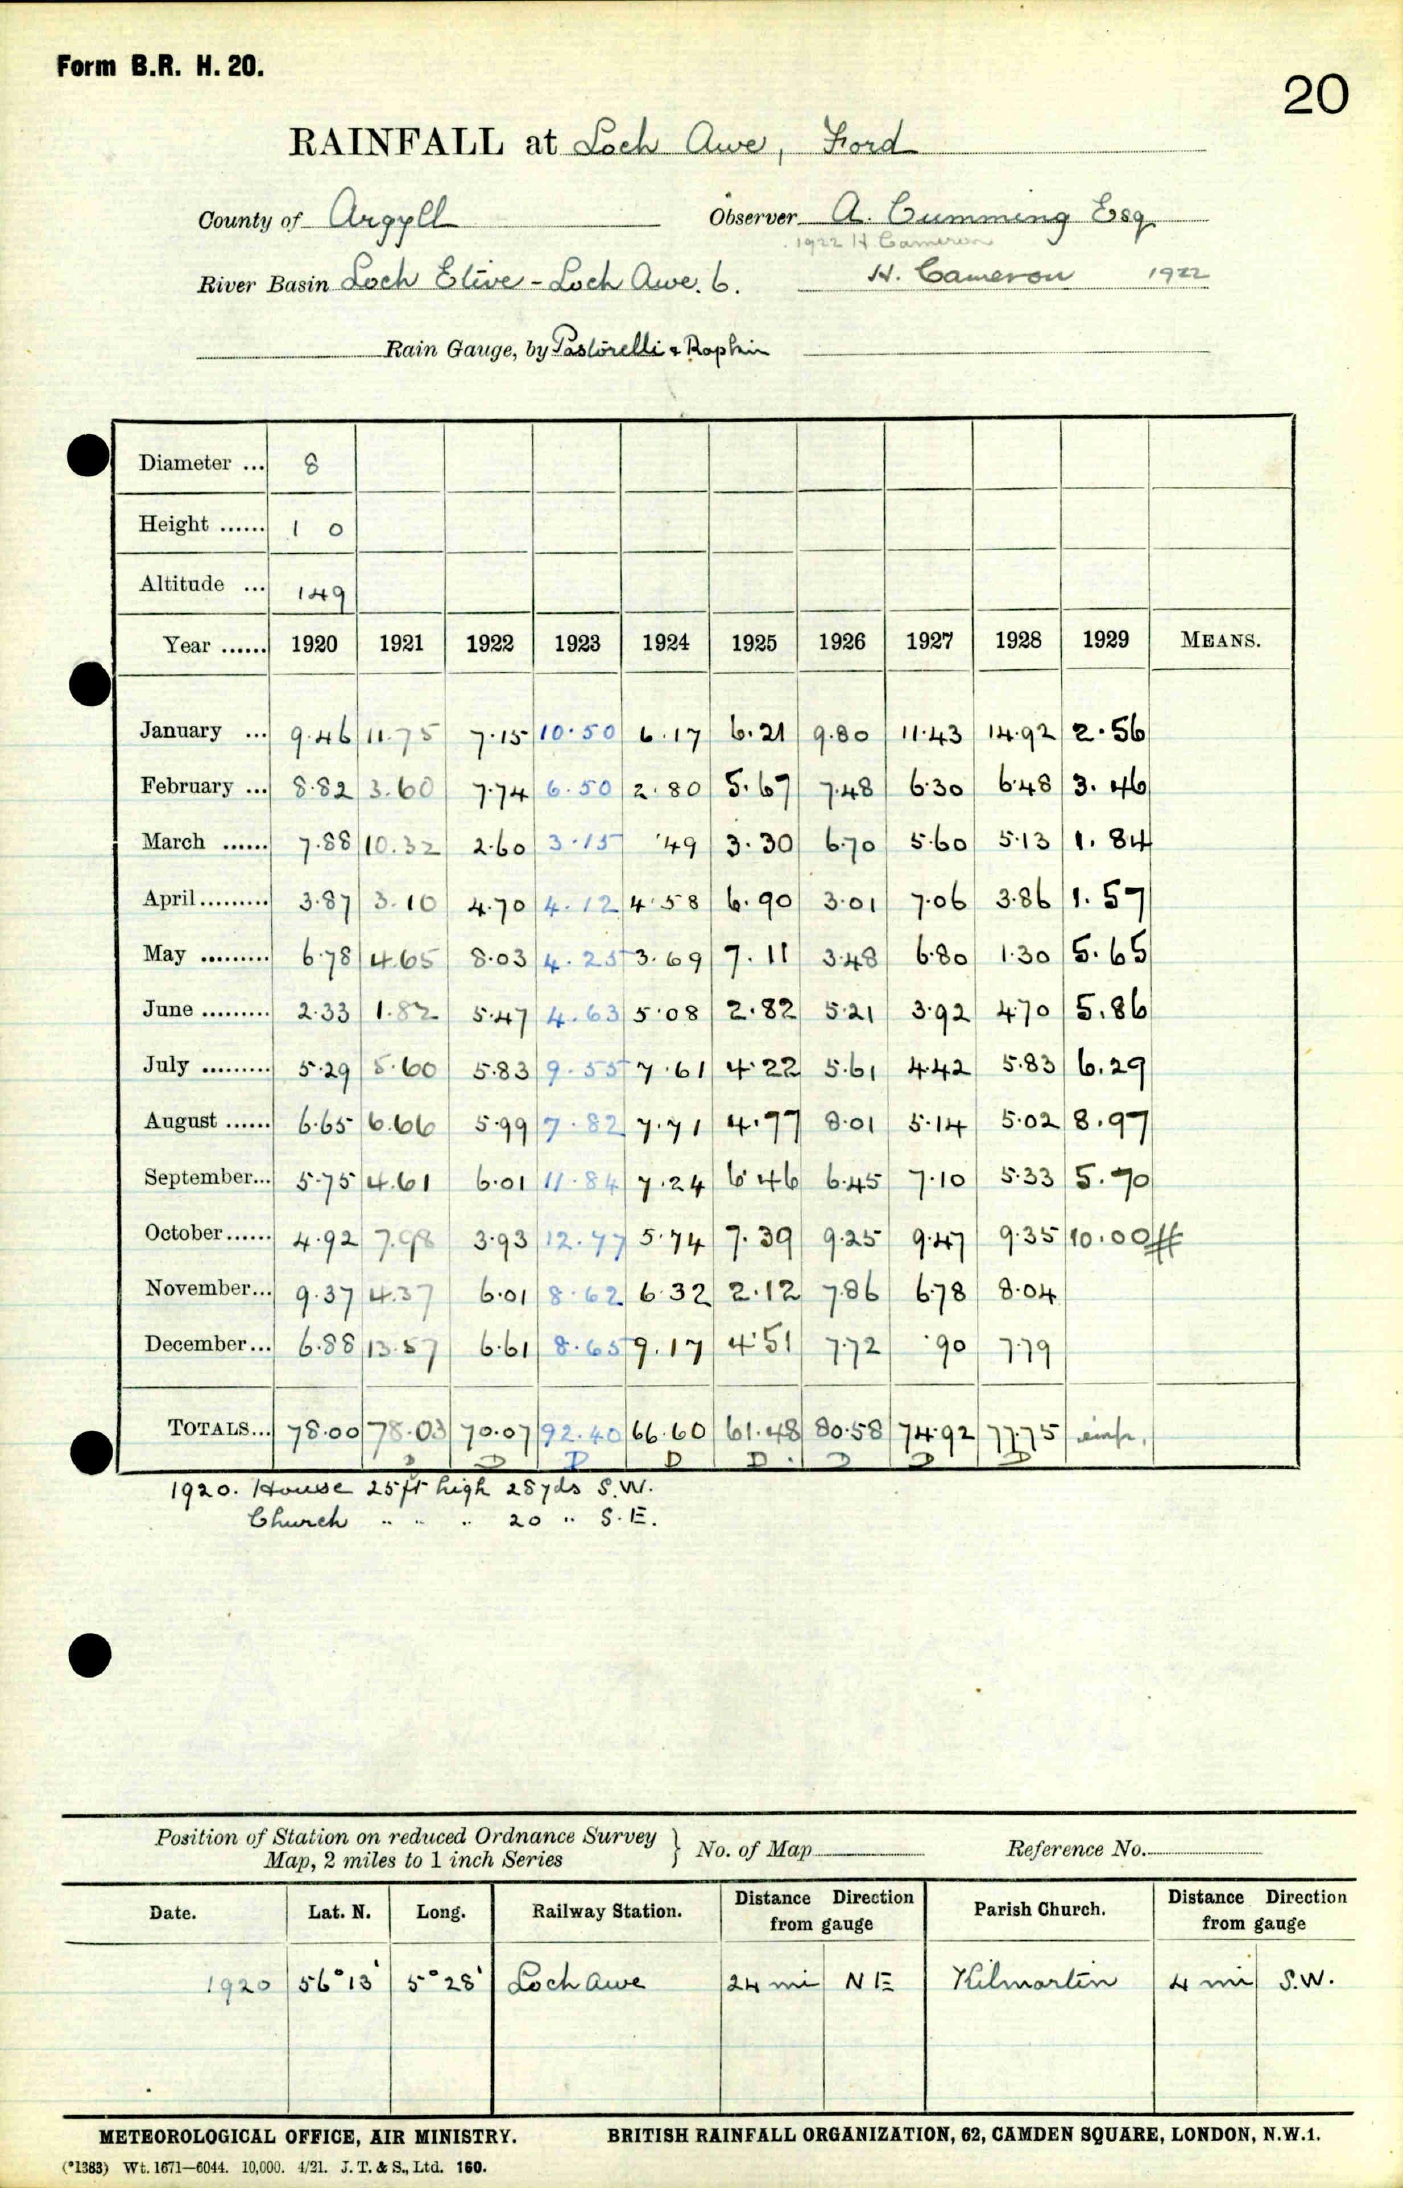 Form B.R. H. 20.
20
RAINFALL at Loch Awe, Ford
County of Argyll Observer A. Cumming Esq
1922 H Cameron
River Basin Loch Etive - Loch Awe. 6. H. Cameron 1922
Rain Gauge, by Pastorelli & Rapkin
Diameter ... 8
Height ...... 1 0
Altitude ... 149
Year ...... 1920 1921 1922 1923 1924 1925 1926 1927 1928 1929 MEANS.
January ... 9.46 11.75 7.15 10.50 6.17 6.21 9.80 11.43 14.92 2.56
February ... 8.82 3.60 7.74 6.50 2.80 5.67 7.48 6.30 6.48 3.46
March ...... 7.88 10.32 2.60 3.15 .49 3.30 6.70 5.60 5.13 1.84
April......... 3.87 3.10 4.70 4.12 4.58 6.90 3.01 7.06 3.86 1.57
May ......... 6.78 4.65 8.03 4.25 3.69 7.11 3.48 6.80 1.30 5.65
June ......... 2.33 1.82 5.47 4.63 5.08 2.82 5.21 3.92 4.70 5.86
July ......... 5.29 5.60 5.83 9.55 7.61 4.22 5.61 4.42 5.83 6.29
August ...... 6.65 6.66 5.99 7.82 7.71 4.77 8.01 5.14 5.02 8.97
September... 5.75 4.61 6.01 11.84 7.24 6.46 6.45 7.10 5.33 5.70
October...... 4.92 7.98 3.93 12.77 5.74 7.39 9.25 9.47 9.35 10.00
November... 9.37 4.37 6.01 8.62 6.32 2.12 7.86 6.78 8.04
December... 6.88 13.57 6.61 8.65 9.17 4.51 7.72 .90 7.79
TOTALS... 78.00 78.03 70.07 92.40 66.60 61.48 80.58 74.92 77.75
D D D D D D D D
1920. House 25ft high 28yds S.W.
Church " " " 20 " S.E.
Position of Station on reduced Ordnance Survey
Map, 2 miles to 1 inch Series } No. of Map Reference No.
Date. Lat. N. Long. Railway Station. Distance Direction from gauge Parish Church. Distance Direction from gauge
1920 56°13' 5°28' Loch Awe 24 mi NE Kilmartin 4 mi S.W.
METEOROLOGICAL OFFICE, AIR MINISTRY. BRITISH RAINFALL ORGANIZATION, 62, CAMDEN SQUARE, LONDON, N.W.1.
(*1383) Wt. 1671—6044. 10,000. 4/21. J. T. & S., Ltd. 160.